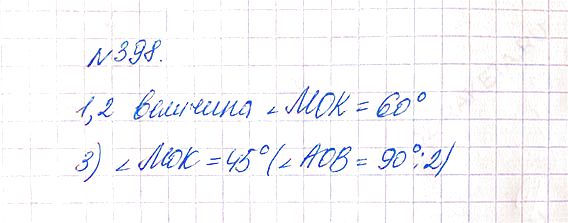 №398.
1,2 величина ∠MOK = 60°
3) ∠MOK = 45° (∠AOB = 90°:2)